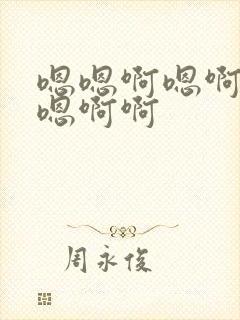 嗯嗯啊嗯啊
嗯啊啊
周永俊